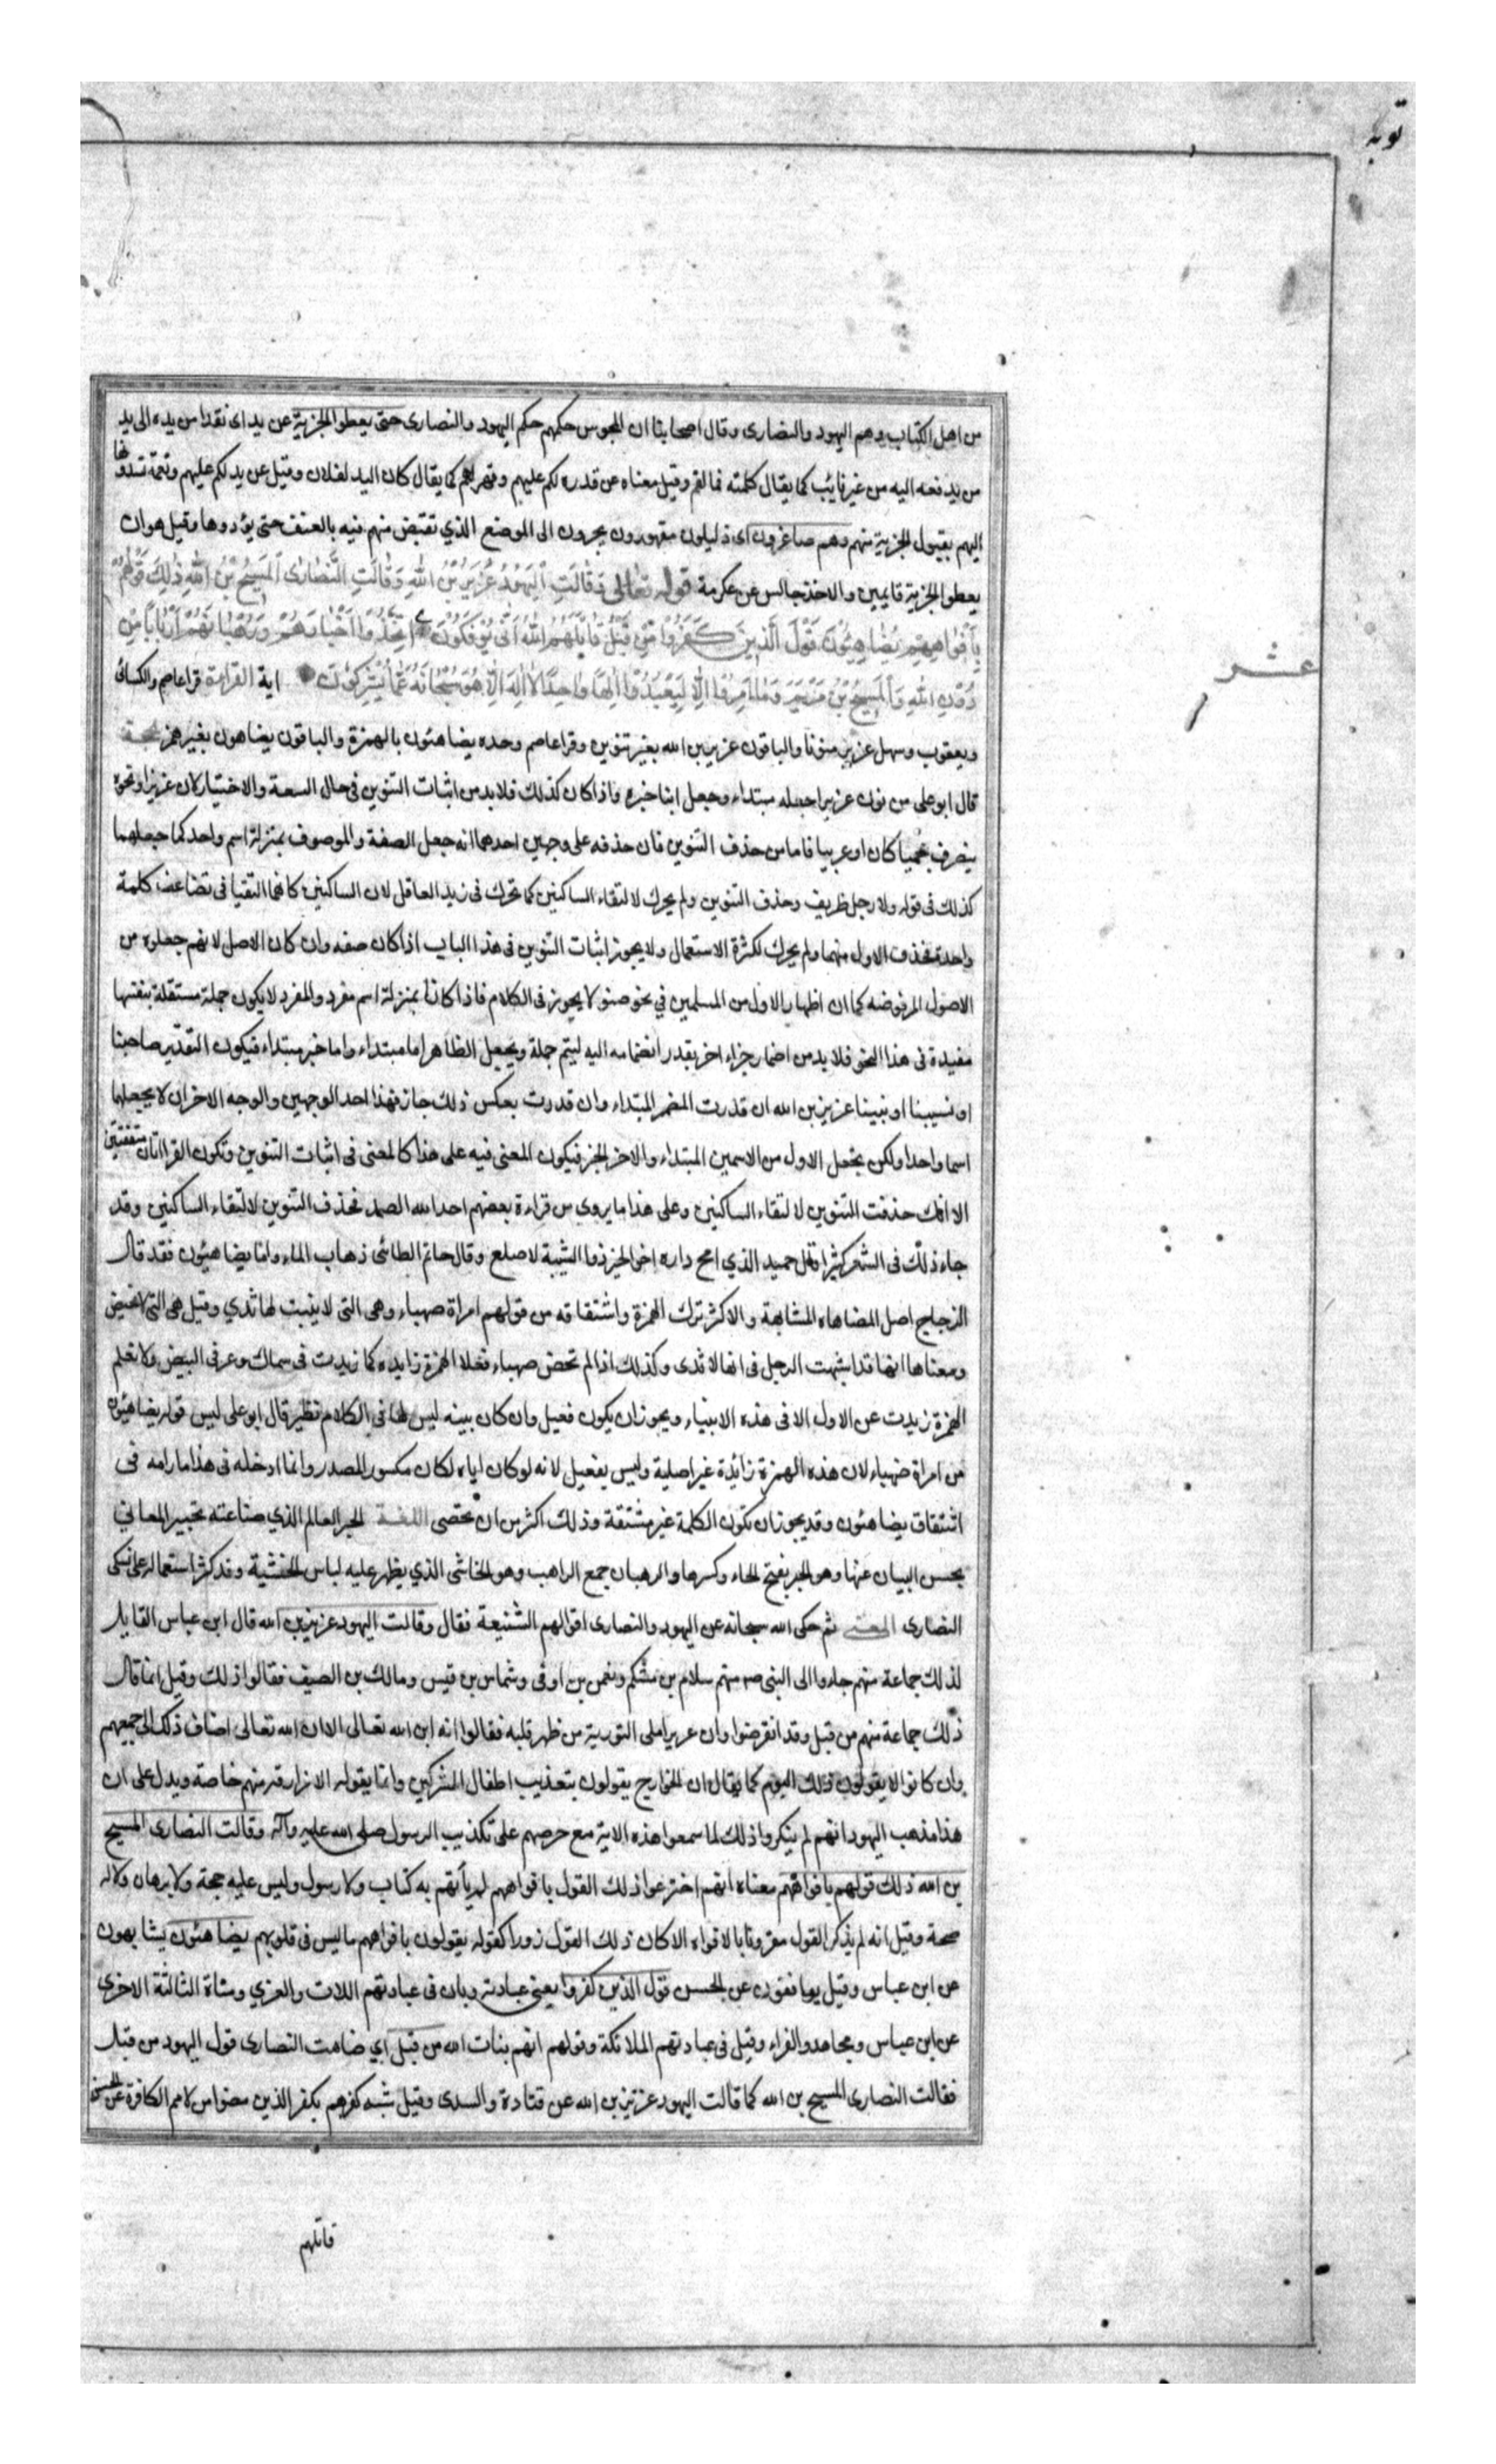 توبه
من اهل الكتاب وهم اليهود والنصارى وقال اصحابنا ان المجوس حكمهم حكم اليهود والنصارى حتى يعطوا الجزية عن يد اى نقدا من يده الى يد
من يدفعه اليه من غير نائب كما يقال كلمته فما لفم وقيل معناه عن قدره لكم عليهم وقهر لهم كما يقال كان اليد لفلان وقيل عن يد لكم عليهم ونعمة تسدونها
اليهم بقبول الجزية منهم وهم صاغرون اى ذليلون مقهورون يجرون الى الموضع الذي تقبض منهم فيه بالعنف حتى يؤدوها وقيل هو ان
يعطوا الجزية قايمين والاخذ جالس عن عكرمة قوله تعالى وَقَالَتِ الْيَهُودُ عُزَيْرٌ بْنُ اللهِ وَقَالَتِ النَّصَارَى الْمَسِيحُ بْنُ اللهِ ذٰلِكَ قَوْلُهُمْ
بِأَفْوَاهِهِمْ يُضَاهِئُونَ قَوْلَ الَّذِينَ كَفَرُوا مِنْ قَبْلُ قَاتَلَهُمُ اللهُ أَنّٰى يُؤْفَكُونَ اتَّخَذُوا أَحْبَارَهُمْ وَرُهْبَانَهُمْ أَرْبَابًا مِنْ
دُونِ اللهِ وَالْمَسِيحَ بْنَ مَرْيَمَ وَمَا أُمِرُوا إِلَّا لِيَعْبُدُوا إِلٰهًا وَاحِدًا لَا إِلٰهَ إِلَّا هُوَ سُبْحَانَهُ عَمَّا يُشْرِكُونَ اية القراءة قرا عاصم والكسائى
عشر
ويعقوب وسهل عزير منونا والباقون عزير بن الله بغير تنوين وقرا عاصم وحده يضاهئون بالهمزة والباقون يضاهون بغير همز الحجة
قال ابو على من نون عزيرا جعله مبتداء وجعل ابنا خبره واذا كان كذلك فلا بد من اثبات التنوين فى حال السعة والاختيار لان عزيرا ونحوه
ينصرف عجميا كان او عربيا فاما من حذف التنوين فان حذفه على وجهين احدهما انه جعل الصفة والموصوف بمنزلة اسم واحد كما جعلهما
كذلك فى قوله ولا رجل ظريف وحذف التنوين ولم يحرك لالتقاء الساكنين كما تحرك فى زيد العاقل لان الساكنين كانهما التقيا فى تضاعف كلمة
واحدة فحذف الاول منهما ولم يحرك لكثرة الاستعمال ولا يجوز اثبات التنوين فى هذا الباب اذا كان صفه وان كان الاصل لانهم جعلوه من
الاصول المرفوضه كما ان اظهار الاول من المسلمين في نحو ضننو لا يجوز فى الكلام فاذا كانا بمنزلة اسم مفرد والمفرد لا يكون جملة مستقلة بنفسها
مفيدة فى هذا النحو فلا بد من اضمار جزاء اخر يقدر انضمامه اليه ليتم جملة ويجعل الظاهر اما مبتداء واما خبر مبتداء فيكون التقدير صاحبنا
او نسيبنا او نبينا عزير بن الله ان قدرت المضمر المبتداء وان قدرت بعكس ذلك جاز فهذا احد الوجهين والوجه الاخر ان لا يجعلهما
اسما واحدا ولكن يجعل الاول من الاسمين المبتداء والاخر الخبر فيكون المعنى فيه على هذا كالمعنى فى اثبات التنوين وتكون القراءتان متفقتين
الا انك حذفت التنوين لالتقاء الساكنين وعلى هذا ما يروى من قراءة بعضهم احد الله الصمد فحذف التنوين لالتقاء الساكنين وقد
جاء ذلك فى الشعر كثيرا قال حميد الذي امج داره اخو الخمر ذو الشيبة لاصلع وقال حاتم الطائى ذهاب الماء واما يضاهئون فقد قال
الزجاج اصل المضاهاه المشابهة والاكثر ترك الهمزة واشتقاقه من قولهم امراة ضهياء وهى التى لا ينبت لها ثدي وقيل هى التى لا تحيض
ومعناها انها قد اشبهت الرجل فى انها لا ثدى وكذلك اذا لم تحض ضهياء فعلا الهمزة زايده كما زيدت فى سماك وعرفى البيض ولا نعلم
الهمزة زيدت عن الاول الا فى هذه الاشياء ويجوز ان يكون فعيل وان كان بينه ليس لها في الكلام نظير قال ابو على ليس قوله يضاهئون
من امراة ضهياء لان هذه الهمزة زائدة غير اصلية وليس يفعيل لانه لو كان اياه لكان مكسور المصدر وانما ادخله فى هذا مارامه فى
اشتقاق يضاهئون وقد يجوز ان تكون الكلمة غير مشتقة وذلك اكثر من ان تحصى اللغة الحبر العالم الذي صناعته تحبير المعاني
بحسن البيان عنها وهو الحبر بفتح الحاء وكسرها والرهبان جمع الراهب وهو الخاشى الذي يظهر عليه لباس الخشية وقد كثر استعماله على متنسكى
النصارى المعنى ثم حكى الله سبحانه عن اليهود والنصارى اقوالهم الشنيعة فقال وقالت اليهود عزير بن الله قال ابن عباس القايل
لذلك جماعة منهم جاءوا الى النبى ص منهم سلام بن مشكم ونعمن بن اوفى وشماس بن قيس ومالك بن الصيف فقالوا ذلك وقيل انما قال
ذلك جماعة منهم من قبل وقد انقرضوا وان عزيرا املى التورية من ظهر قلبه فقالوا انه ابن الله تعالى الا ان الله تعالى اضاف ذلك الى جميعهم
وان كانوا لا يقولون ذلك اليوم كما يقال ان الخوارج يقولون بتعذيب اطفال المشركين وانما يقوله الازارقه منهم خاصة ويدل على ان
هذا مذهب اليهود انهم لم ينكروا ذلك لما سمعوا هذه الاية مع حرصهم على تكذيب الرسول صلى الله عليه وآله وقالت النصارى المسيح
بن الله ذلك قولهم بافواههم معناه انهم اخترعوا ذلك القول بافواههم لم يأتهم به كتاب ولا رسول وليس عليه حجة ولا برهان ولا له
صحة وقيل انه لم يذكر القول مقرونا بالافواه الا كان ذلك القول زورا كقوله يقولون بافواههم ما ليس فى قلوبهم يضاهئون يشابهون
عن ابن عباس وقيل يوافقون عن الحسن قول الذين كفروا يعنى عبادته وبان فى عبادتهم اللات والعزي ومناة الثالثة الاخرى
عن ابن عباس ومجاهد والفراء وقيل فى عبادتهم الملائكة وقولهم انهم بنات الله من قبل اي ضاهت النصارى قول اليهود من قبل
فقالت النصارى المسيح بن الله كما قالت اليهود عزير بن الله عن قتادة والسدى وقيل شبه كفرهم بكفر الذين مضوا من لامم الكافرة عن الحسن
قاتلهم